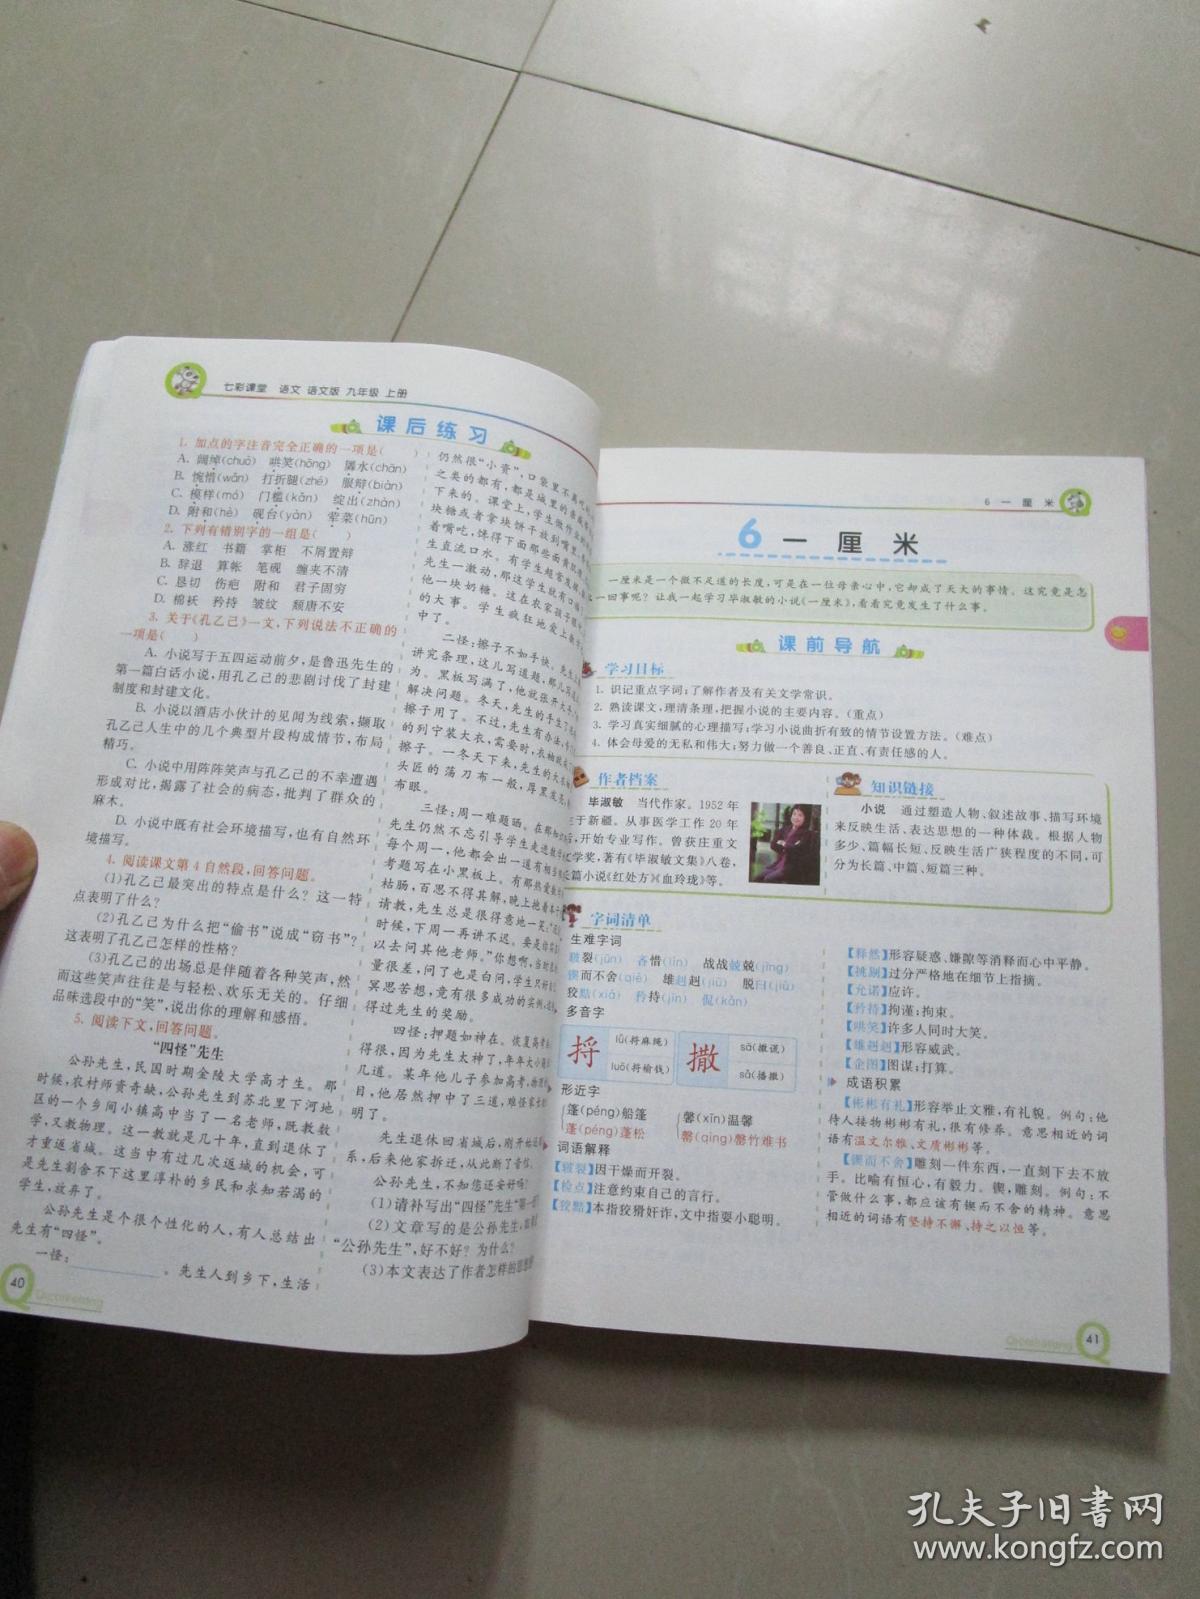 七彩课堂 语文 语文版 九年级 上册
课后练习
1. 加点的字注音完全正确的一项是( )
A. 阔绰(chuò) 哄笑(hōng) 羼水(chān)
B. 惋惜(wǎn) 打折腿(zhé) 服辩(biàn)
C. 模样(mó) 门槛(kǎn) 绽出(zhàn)
D. 附和(hè) 砚台(yàn) 荤菜(hūn)
2. 下列有错别字的一组是( )
A. 涨红 书籍 掌柜 不屑置辩
B. 辞退 算帐 笔砚 缠夹不清
C. 恳切 伤疤 附和 君子固穷
D. 棉袄 矜持 皱纹 颓唐不安
3. 关于《孔乙己》一文,下列说法不正确的
一项是( )
A. 小说写于五四运动前夕,是鲁迅先生的
第一篇白话小说,用孔乙己的悲剧讨伐了封建
制度和封建文化。
B. 小说以酒店小伙计的见闻为线索,撷取
孔乙己人生中的几个典型片段构成情节,布局
精巧。
C. 小说中用阵阵笑声与孔乙己的不幸遭遇
形成对比,揭露了社会的病态,批判了群众的
麻木。
D. 小说中既有社会环境描写,也有自然环
境描写。
4. 阅读课文第4自然段,回答问题。
(1)孔乙己最突出的特点是什么?这一特
点表明了什么?
(2)孔乙己为什么把“偷书”说成“窃书”?
这表明了孔乙己怎样的性格?
(3)孔乙己的出场总是伴随着各种笑声,然
而这些笑声往往是与轻松、欢乐无关的。仔细
品味选段中的“笑”,说出你的理解和感悟。
5. 阅读下文,回答问题。
“四怪”先生
公孙先生,民国时期金陵大学高才生。那
时候,农村师资奇缺,公孙先生到苏北里下河地
区的一个乡间小镇高中当了一名老师,既教数
学,又教物理。这一教就是几十年,直到退休了
才重返省城。这当中有过几次返城的机会,可
是先生割舍不下这里淳朴的乡民和求知若渴的
学生,放弃了。
公孙先生是个很个性化的人,有人总结出
先生有“四怪”。
一怪: 。先生人到乡下,生活
40
仍然很“小资”,口袋里不离
之类的都有,都是城里的
下来的。课堂上,学生做作业
块糖或者拿块饼干放到嘴里
着嘴吃,馋得下面那些面黄
生直流口水。有学生超常发挥
先生一激动,那这学生就有口
他一块奶糖。这在农家孩子眼
的大事。学生疯狂地爱上数学
中了。
二怪:擦子不如手快。先生
讲究条理,这儿写道题,那儿写
为。黑板写满了,他就张开大手
解决问题。冬天,先生的手生了
擦子用了。不过,先生有办法,
的列宁装大衣,需要时,衣袖就成
擦子。一冬天下来,先生的大衣
头匠的荡刀布一般,厚黑发亮
布眼。
三怪:周一难题涵。在那
先生仍然不忘引导学生走进数学
每个周一,他都会出一道有相当
考题写在小黑板上。有那热爱数学
枯肠,百思不得其解,晚上抱着本子
请教,先生总是很得意地一笑:
时候,下周一再讲不迟。要是你
以去问其他老师。”你想啊,当时
量很差,问了也是白问,学生只好
冥思苦想,竟有很多成功的实例,
得过先生的奖励。
四怪:押题如神在。恢复高考
得很,因为先生太神了,年年大小
几道。某年他儿子参加高考,物理
目,他居然押中了三道,难怪家长
明了。
先生退休回省城后,刚开始还
系,后来他家拆迁,从此断了音信。
公孙先生,不知您还安好吗?
(1)请补写出“四怪”先生“第一怪
(2)文章写的是公孙先生,
“公孙先生”,好不好?为什么?
(3)本文表达了作者怎样的思想感
6 一厘米
6 一厘米
一厘米是一个微不足道的长度,可是在一位母亲心中,它却成了天大的事情。这究竟是怎
一回事呢?让我一起学习毕淑敏的小说《一厘米》,看看究竟发生了什么事。
课前导航
学习目标
1. 识记重点字词;了解作者及有关文学常识。
2. 熟读课文,理清条理,把握小说的主要内容。(重点)
3. 学习真实细腻的心理描写;学习小说曲折有致的情节设置方法。(难点)
4. 体会母爱的无私和伟大;努力做一个善良、正直、有责任感的人。
作者档案
毕淑敏 当代作家。1952年
于新疆。从事医学工作20年
后,开始专业写作。曾获庄重文
学奖,著有《毕淑敏文集》八卷,
篇小说《红处方》《血玲珑》等。
知识链接
小说 通过塑造人物、叙述故事、描写环境
来反映生活、表达思想的一种体裁。根据人物
多少、篇幅长短、反映生活广狭程度的不同,可
分为长篇、中篇、短篇三种。
字词清单
生难字词
皲裂(jūn) 吝惜(lìn) 战战兢兢(jīng)
锲而不舍(qiè) 雄赳赳(jiū) 脱臼(jiù)
狡黠(xiá) 矜持(jīn) 侃(kǎn)
多音字
捋
lǚ(捋麻绳)
luō(捋榆钱)
撒
sā(撒谎)
sǎ(播撒)
形近字
篷(péng)船篷
蓬(péng)蓬松
馨(xīn)温馨
罄(qìng)罄竹难书
词语解释
【皲裂】因干燥而开裂。
【检点】注意约束自己的言行。
【狡黠】本指狡猾奸诈,文中指耍小聪明。
【释然】形容疑惑、嫌隙等消释而心中平静。
【挑剔】过分严格地在细节上指摘。
【允诺】应许。
【矜持】拘谨;拘束。
【哄笑】许多人同时大笑。
【雄赳赳】形容威武。
【企图】图谋;打算。
成语积累
【彬彬有礼】形容举止文雅,有礼貌。例句:他
待人接物彬彬有礼,很有修养。意思相近的词
语有温文尔雅、文质彬彬等。
【锲而不舍】雕刻一件东西,一直刻下去不放
手。比喻有恒心,有毅力。锲,雕刻。例句:不
管做什么事,都应该有锲而不舍的精神。意思
相近的词语有坚持不懈、持之以恒等。
41
孔夫子旧书网
www.kongfz.com